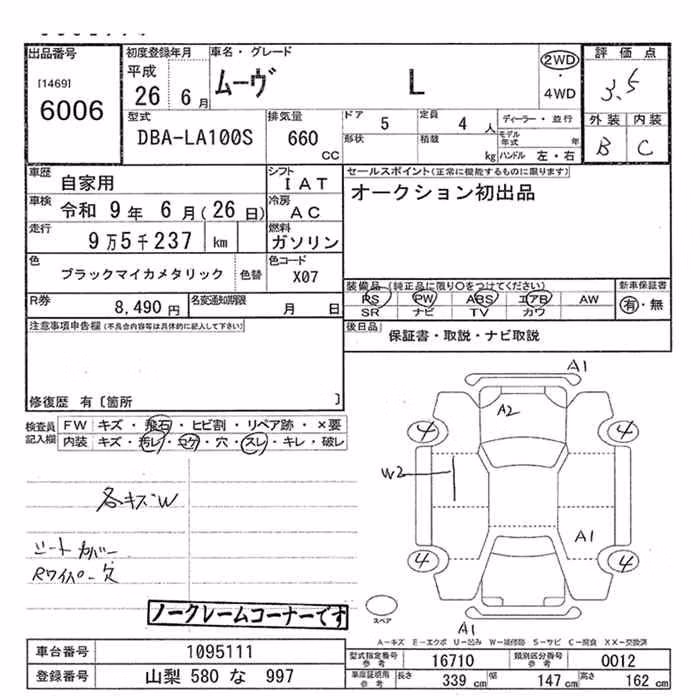 出品番号 初度登録年月 車名・グレード 評価点
[1469] 平成 ムーヴ L 2WD ・ 4WD 3.5
6006 26 6月 外装 内装
型式 排気量 ドア 5 定員 4人 ディーラー・並行 B C
DBA-LA100S 660 CC 形状 積載 kg モデル年式 年 ハンドル 左・右
車歴 自家用 シフト IAT セールスポイント(正常に機能するものに限ります)
車検 令和 9年 6月(26日) 冷房 AC オークション初出品
走行 9万5千237 km 燃料 ガソリン
色 ブラックマイカメタリック 色替 色コード X07
装備品(純正品に限り○をつけてください) 新車保証書
PS PW ABS エアB AW 有・無
SR ナビ TV カワ
R券 8,490円 名変通知期限 月 日
後日品 保証書・取説・ナビ取説
注意事項申告欄(不具合内容等は具体的に記入して下さい)
修復歴 有〔箇所 〕
検査員記入欄 FW キズ・飛石・ヒビ割・リペア跡・×要
内装 キズ・汚れ・コゲ・穴・スレ・キレ・破レ
A1
A2
4 4
W2
A1
4 4
A1
各キズW
シートカバー
Rワイパー欠
ノークレームコーナーです
スペア
A-キズ E-エクボ U-凹み W-補修跡 S-サビ C-腐食 XX-交換済
車台番号 1095111
型式指定番号 参考 16710 類別区分番号 参考 0012
登録番号 山梨 580 な 997
車庫証明用 参考 長さ 339 cm 幅 147 cm 高さ 162 cm